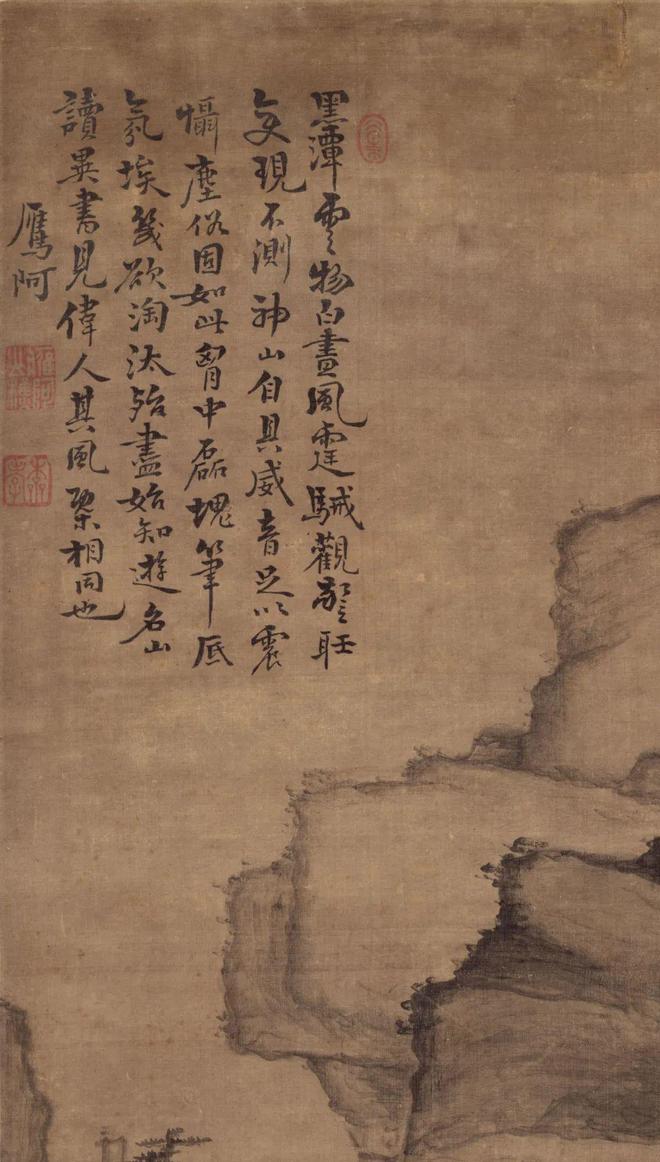 黑潭雲物白晝風霆駴觀警聽
變現不測神山自具威音足以震
懾塵俗固如此胷中磊塊筆底
氛埃幾欲淘汰殆盡始知遊名山
讀異書見偉人其風槩相同也
鷹阿
本孝